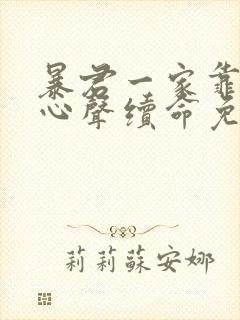 暴君一家靠
心聲續命免
莉莉蘇安娜